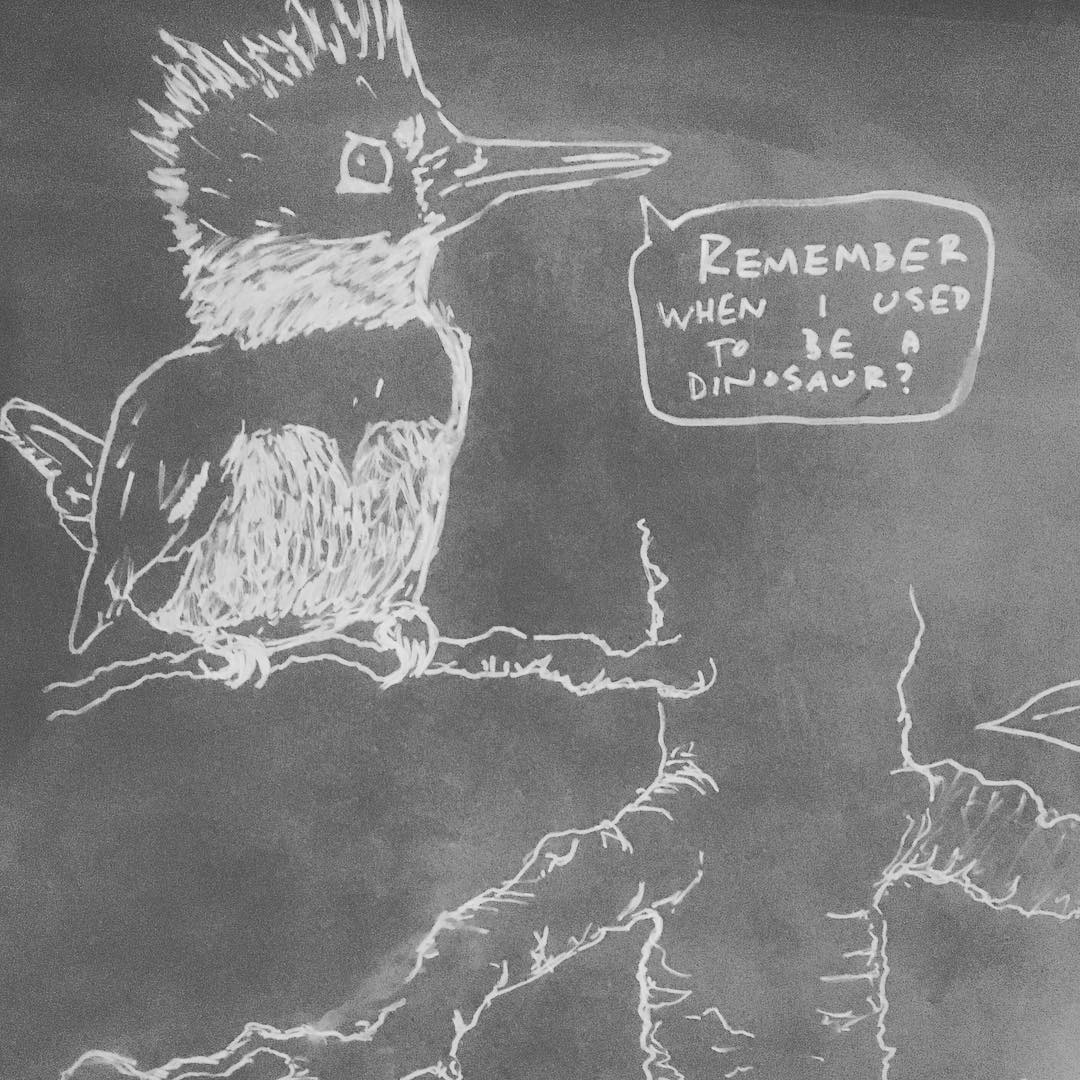 REMEMBER
WHEN I USED
TO BE A
DINOSAUR?